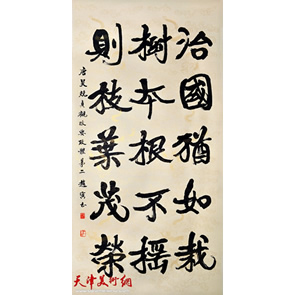 治國猶如栽
樹本根不搖
則枝葉茂榮
唐吴兢貞觀政要政體第二 趙寅书
天津美術網